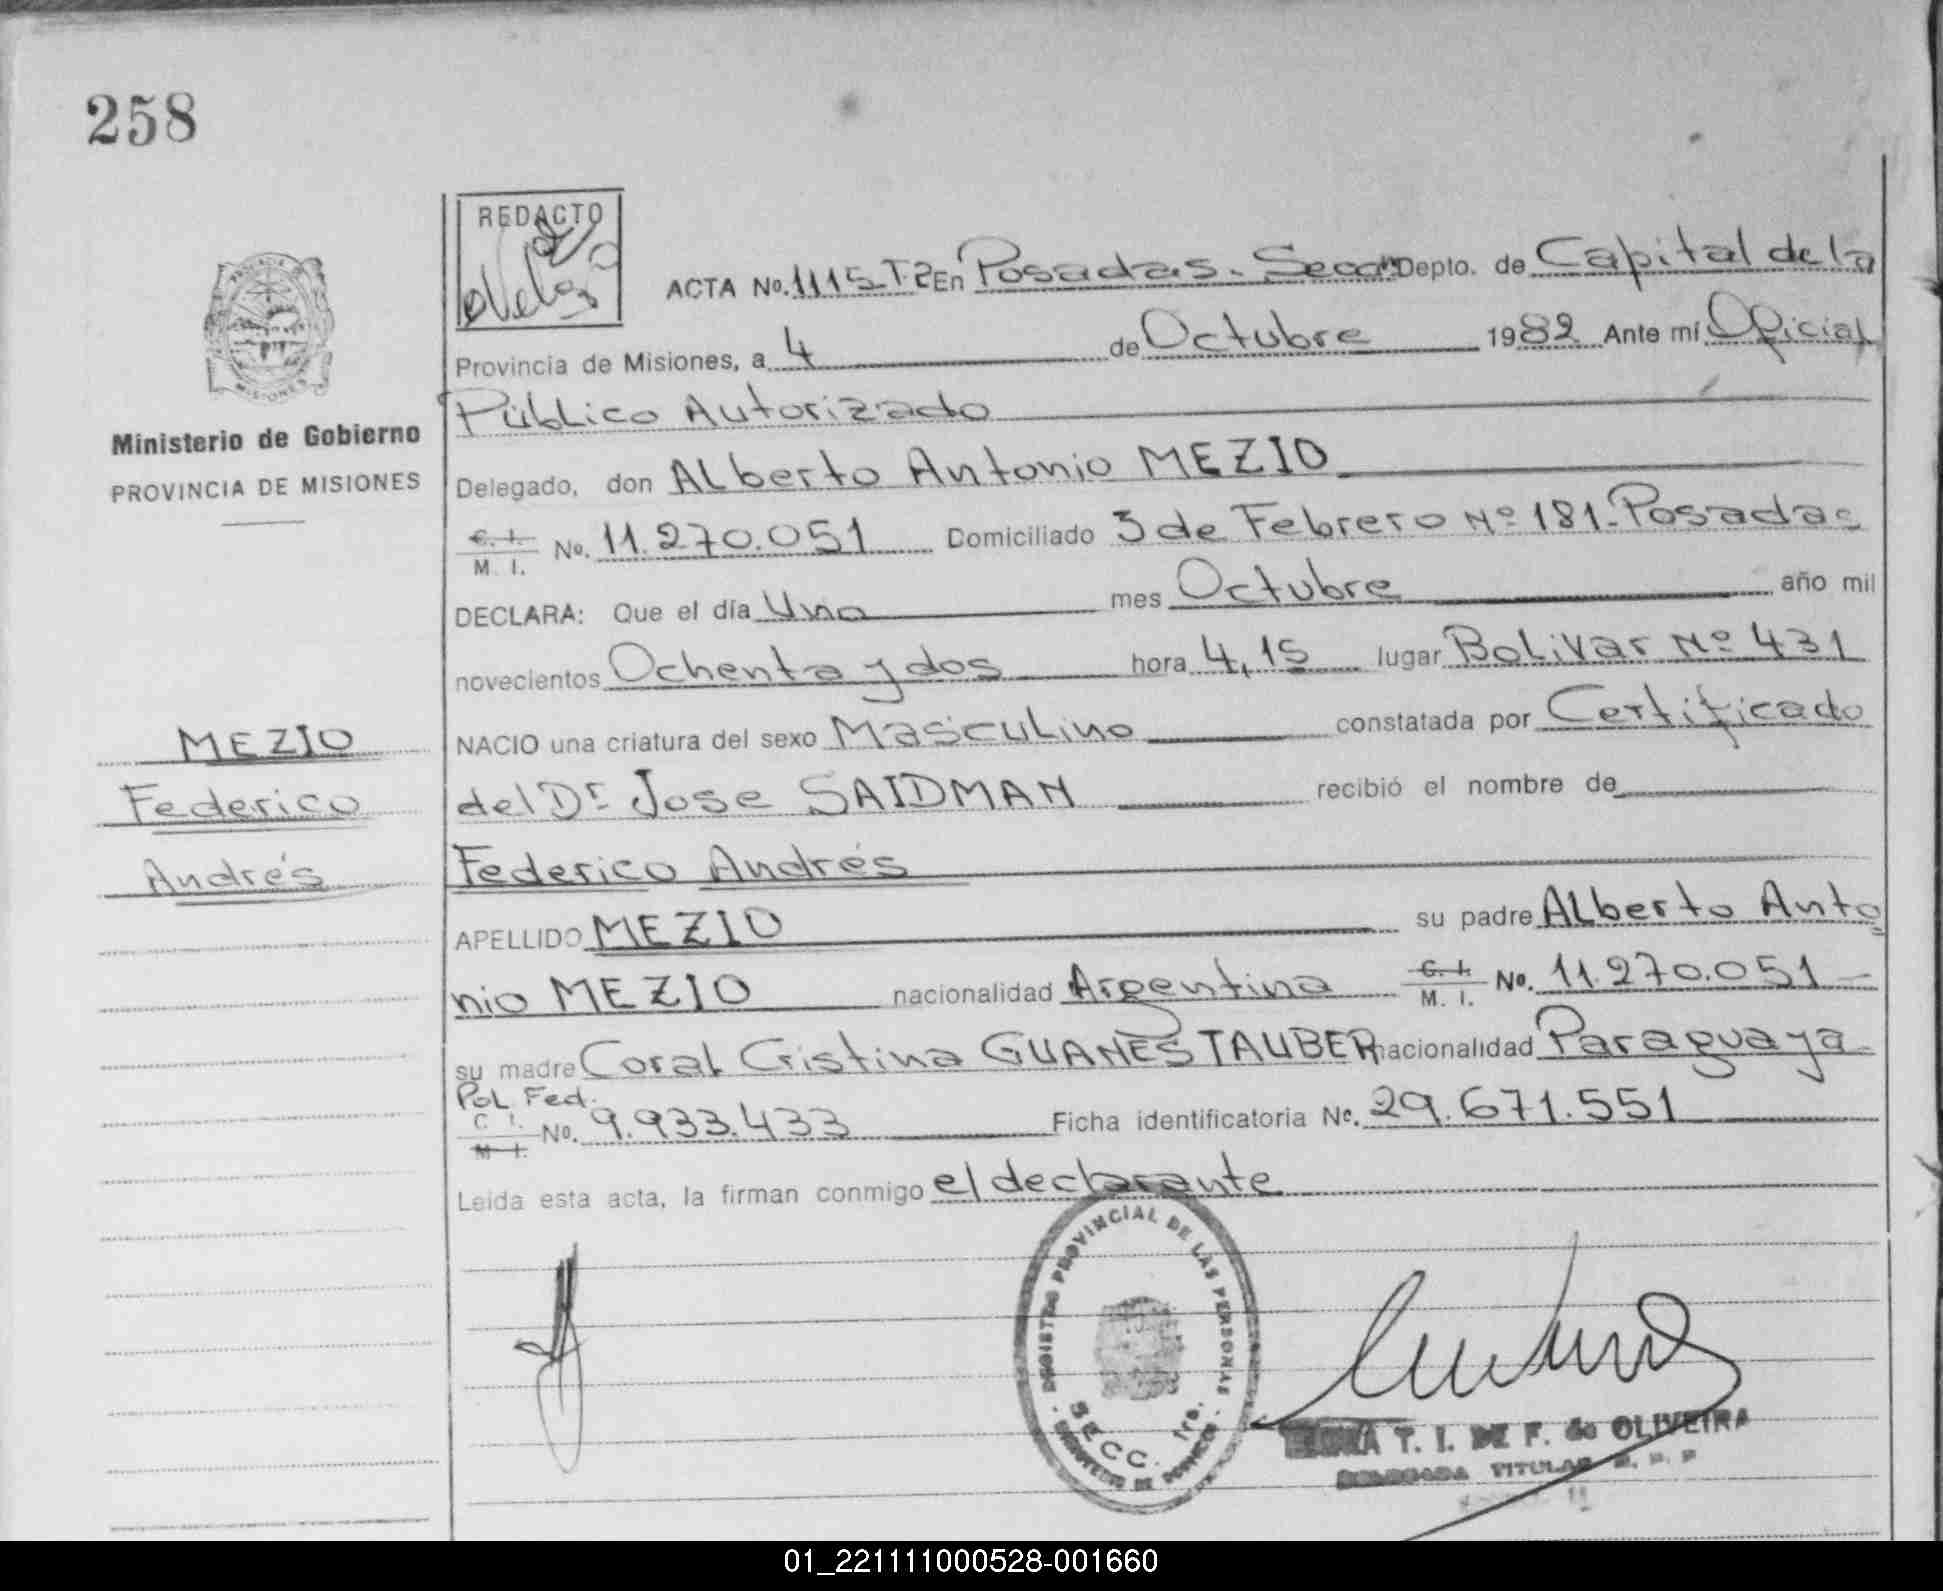 258
REDACTO
ACTA No. 1115 T-2 En Posadas. Secc. 1ra Depto. de Capital de la
Provincia de Misiones, a 4 de Octubre 1982 Ante mí Oficial
Público Autorizado
Delegado, don ALberto Antonio MEZIO
C. I. M. I. No. 11.270.051 Domiciliado 3 de Febrero Nº 181-Posadas
DECLARA: Que el día Uno mes Octubre año mil
novecientos Ochenta y dos hora 4,15 lugar BoLiVar Nº 431
NACIO una criatura del sexo MascuLino constatada por Certificado
del Dr Jose SAIDMAN recibió el nombre de
Federico Andrés
APELLIDO MEZIO su padre ALberto Anto
nio MEZIO nacionalidad Argentina C. I. M. I. No. 11.270.051
su madre CoraL Cristina GUANES TAUBER nacionalidad Paraguaya
PoL Fed.
C. I. M. I. No. 9.933.433 Ficha identificatoria No. 29.671.551
Leida esta acta, la firman conmigo el declarante
PROVINCIA DE MISIONES
Ministerio de Gobierno
PROVINCIA DE MISIONES
MEZIO
Federico
Andrés
REGISTRO PROVINCIAL DE LAS PERSONAS
SECC. 1ra.
T. I. DE F. de OLIVEIRA
DELEGADA TITULAR
01_221111000528-001660